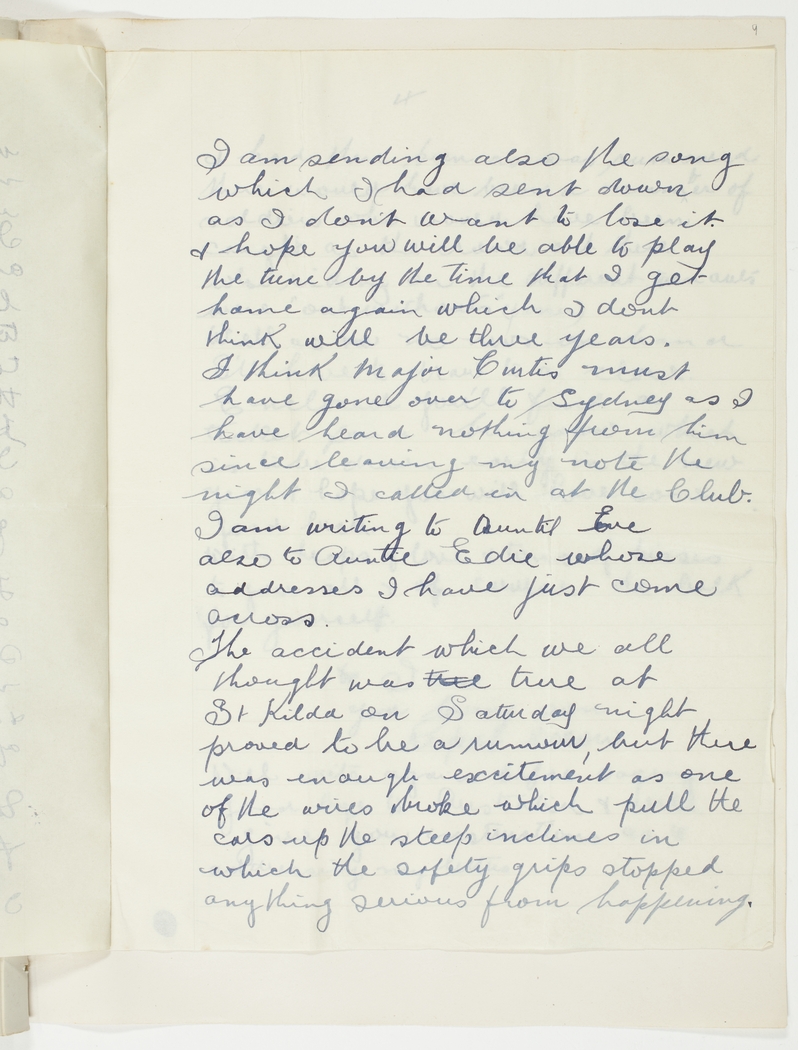 9
I am sending also the song
which I had sent down
as I don't want to lose it.
& hope you will be able to play
the tune by the time that I get
home again which I dont
think will be three years.
I think Major Curtis must
have gone over to Sydney as I
have heard nothing from him
since leaving my note the
night I called in at the Club.
I am writing to Eve
also to Auntie Edie whose
addresses I have just come
across.
The accident which we all
thought was true true at
St Kilda on Saturday night
proved to be a rumour, but there
was enough excitement as one
of the wires broke which pull the
cars up the steep inclines in
which the safety grips stopped
anything serious from happening.